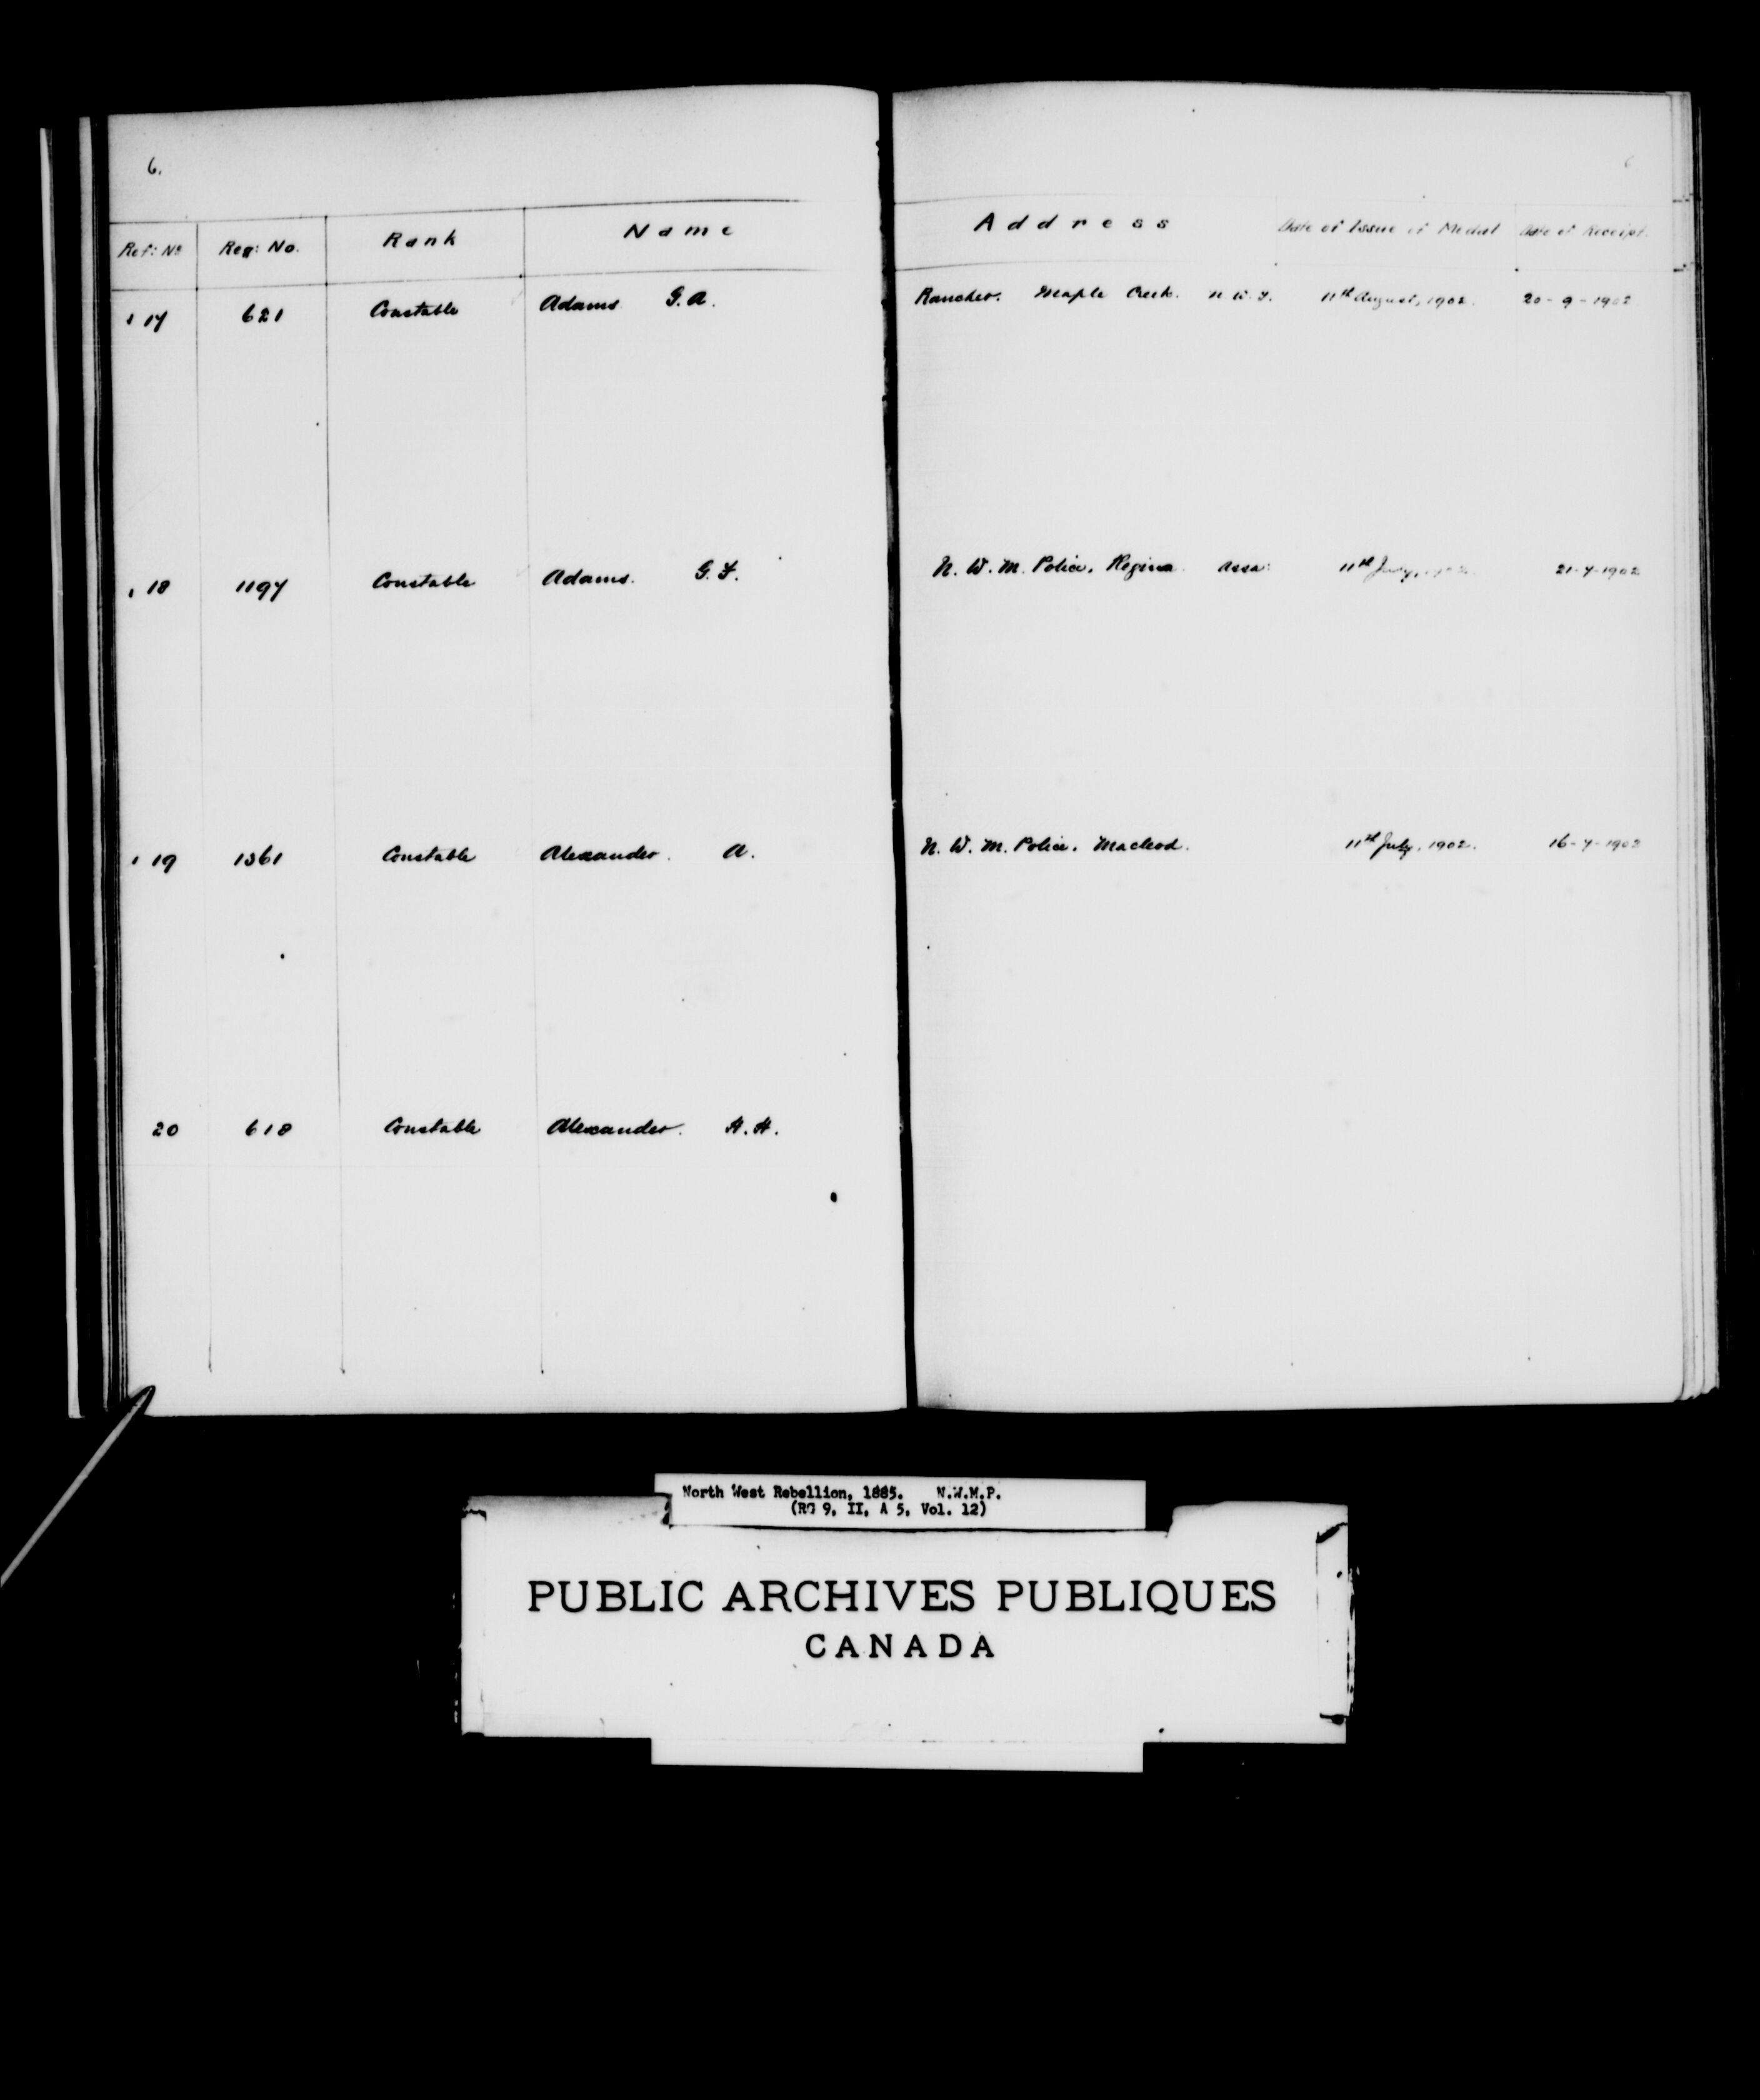 6. 6
Ref: No Reg: No. Rank Name Address Date of Issue of Medal Date of Receipt.
17 621 Constable Adams G. A. Rancher. Maple Creek. N. W. T. 11th August, 1902. 20-9-1902
18 1197 Constable Adams. G. F. N. W. M. Police, Regina Assa: 11th July, 1902 21-7-1902
19 1361 Constable Alexander. A. N. W. M. Police. Macleod. 11th July, 1902. 16-7-1902
20 618 Constable Alexander. H. H.
North West Rebellion, 1885. N.W.M.P.
(RG 9, II, A 5, Vol. 12)
PUBLIC ARCHIVES PUBLIQUES
CANADA